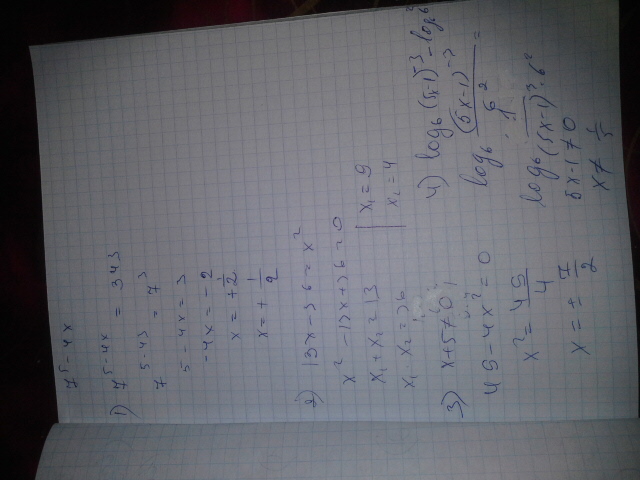 7^5-4x
1) 7^5-4x = 343
7^5-4x = 7^3
5-4x=3
-4x=-2
x=+1/2
x=+1/2
2) 13x-36=x^2
x^2-13x+36=0
x1+x2=13
x1 x2=36
x1=9
x2=4
3) x+5≠0
49-4x^2=0
x^2=49/4
x=±7/2
4) log6(5x-1)^-3-log6 6^2
log6 (5x-1)^-3/6^2=
5x-1≠0
x≠1/5